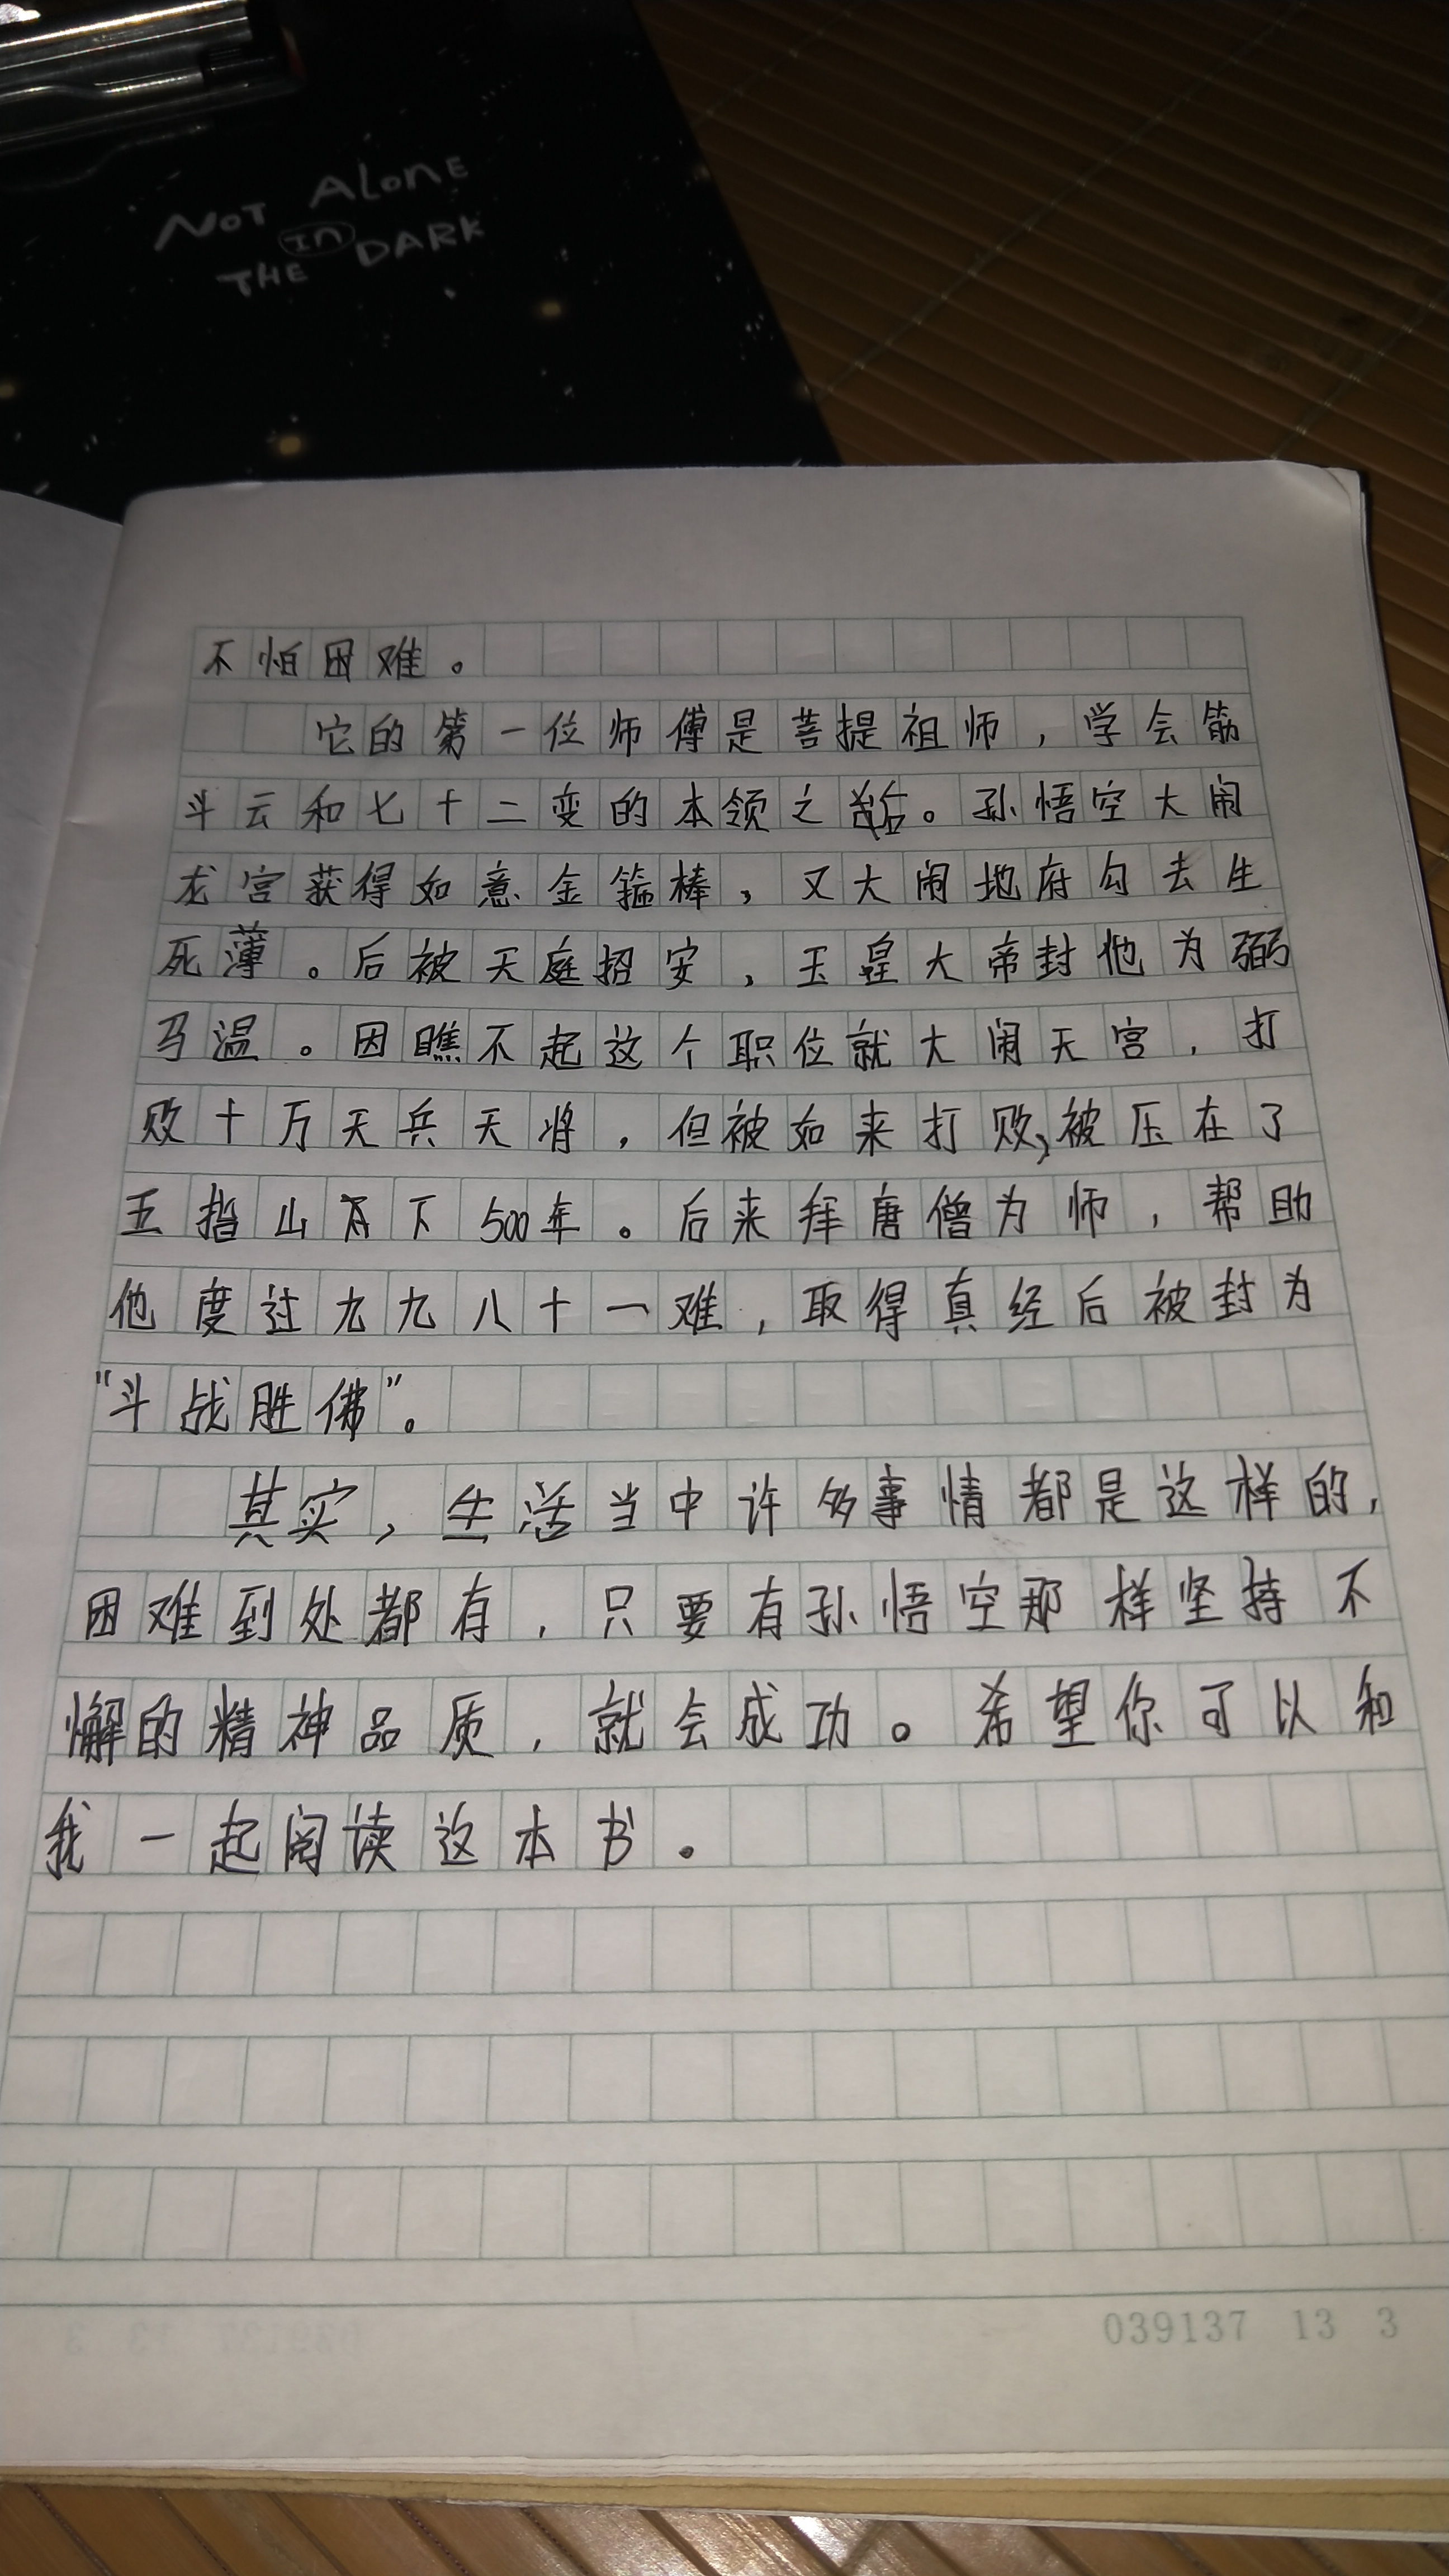 NOT ALONE
IN
THE DARK
不怕困难。
它的第一位师傅是菩提祖师，学会筋
斗云和七十二变的本领之后。孙悟空大闹
龙宫获得如意金箍棒，又大闹地府勾去生
死薄。后被天庭招安，玉皇大帝封他为弼
马温。因瞧不起这个职位就大闹天宫，打
败十万天兵天将，但被如来打败，被压在了
五指山下500年。后来拜唐僧为师，帮助
他度过九九八十一难，取得真经后被封为
"斗战胜佛"。
其实，生活当中许多事情都是这样的，
困难到处都有，只要有孙悟空那样坚持不
懈的精神品质，就会成功。希望你可以和
我一起阅读这本书.
039137 13 3